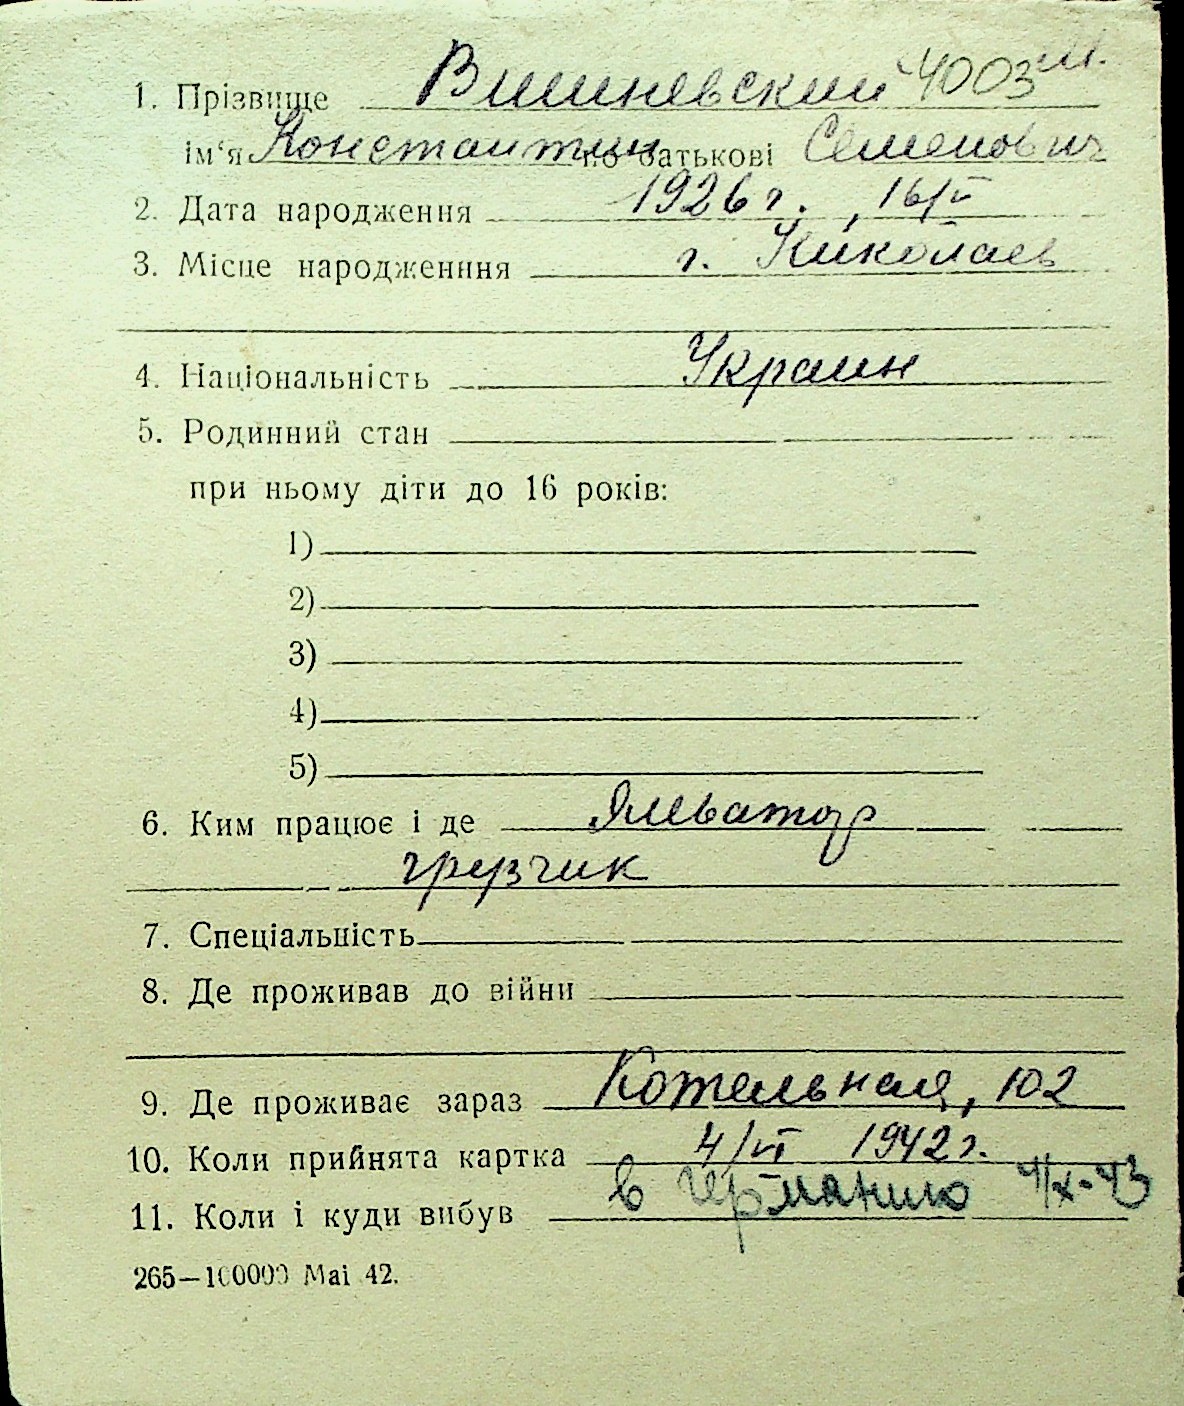 1. Прізвище Вишневский 4003 м.
ім‘я Константин по батькові Семенович
2. Дата народження 1926 г., 16/V
3. Місце народженння г. Николаев
4. Національність Украин
5. Родинний стан
при ньому діти до 16 років:
1)
2)
3)
4)
5)
6. Ким працює і де
грузчик
7. Спеціальність
8. Де проживав до війни
9. Де проживає зараз Котельная, 102
10. Коли прийнята картка 4/VI 1942 г.
11. Коли і куди вибув в Германию 4/X-43
265—100000 Mai 42.